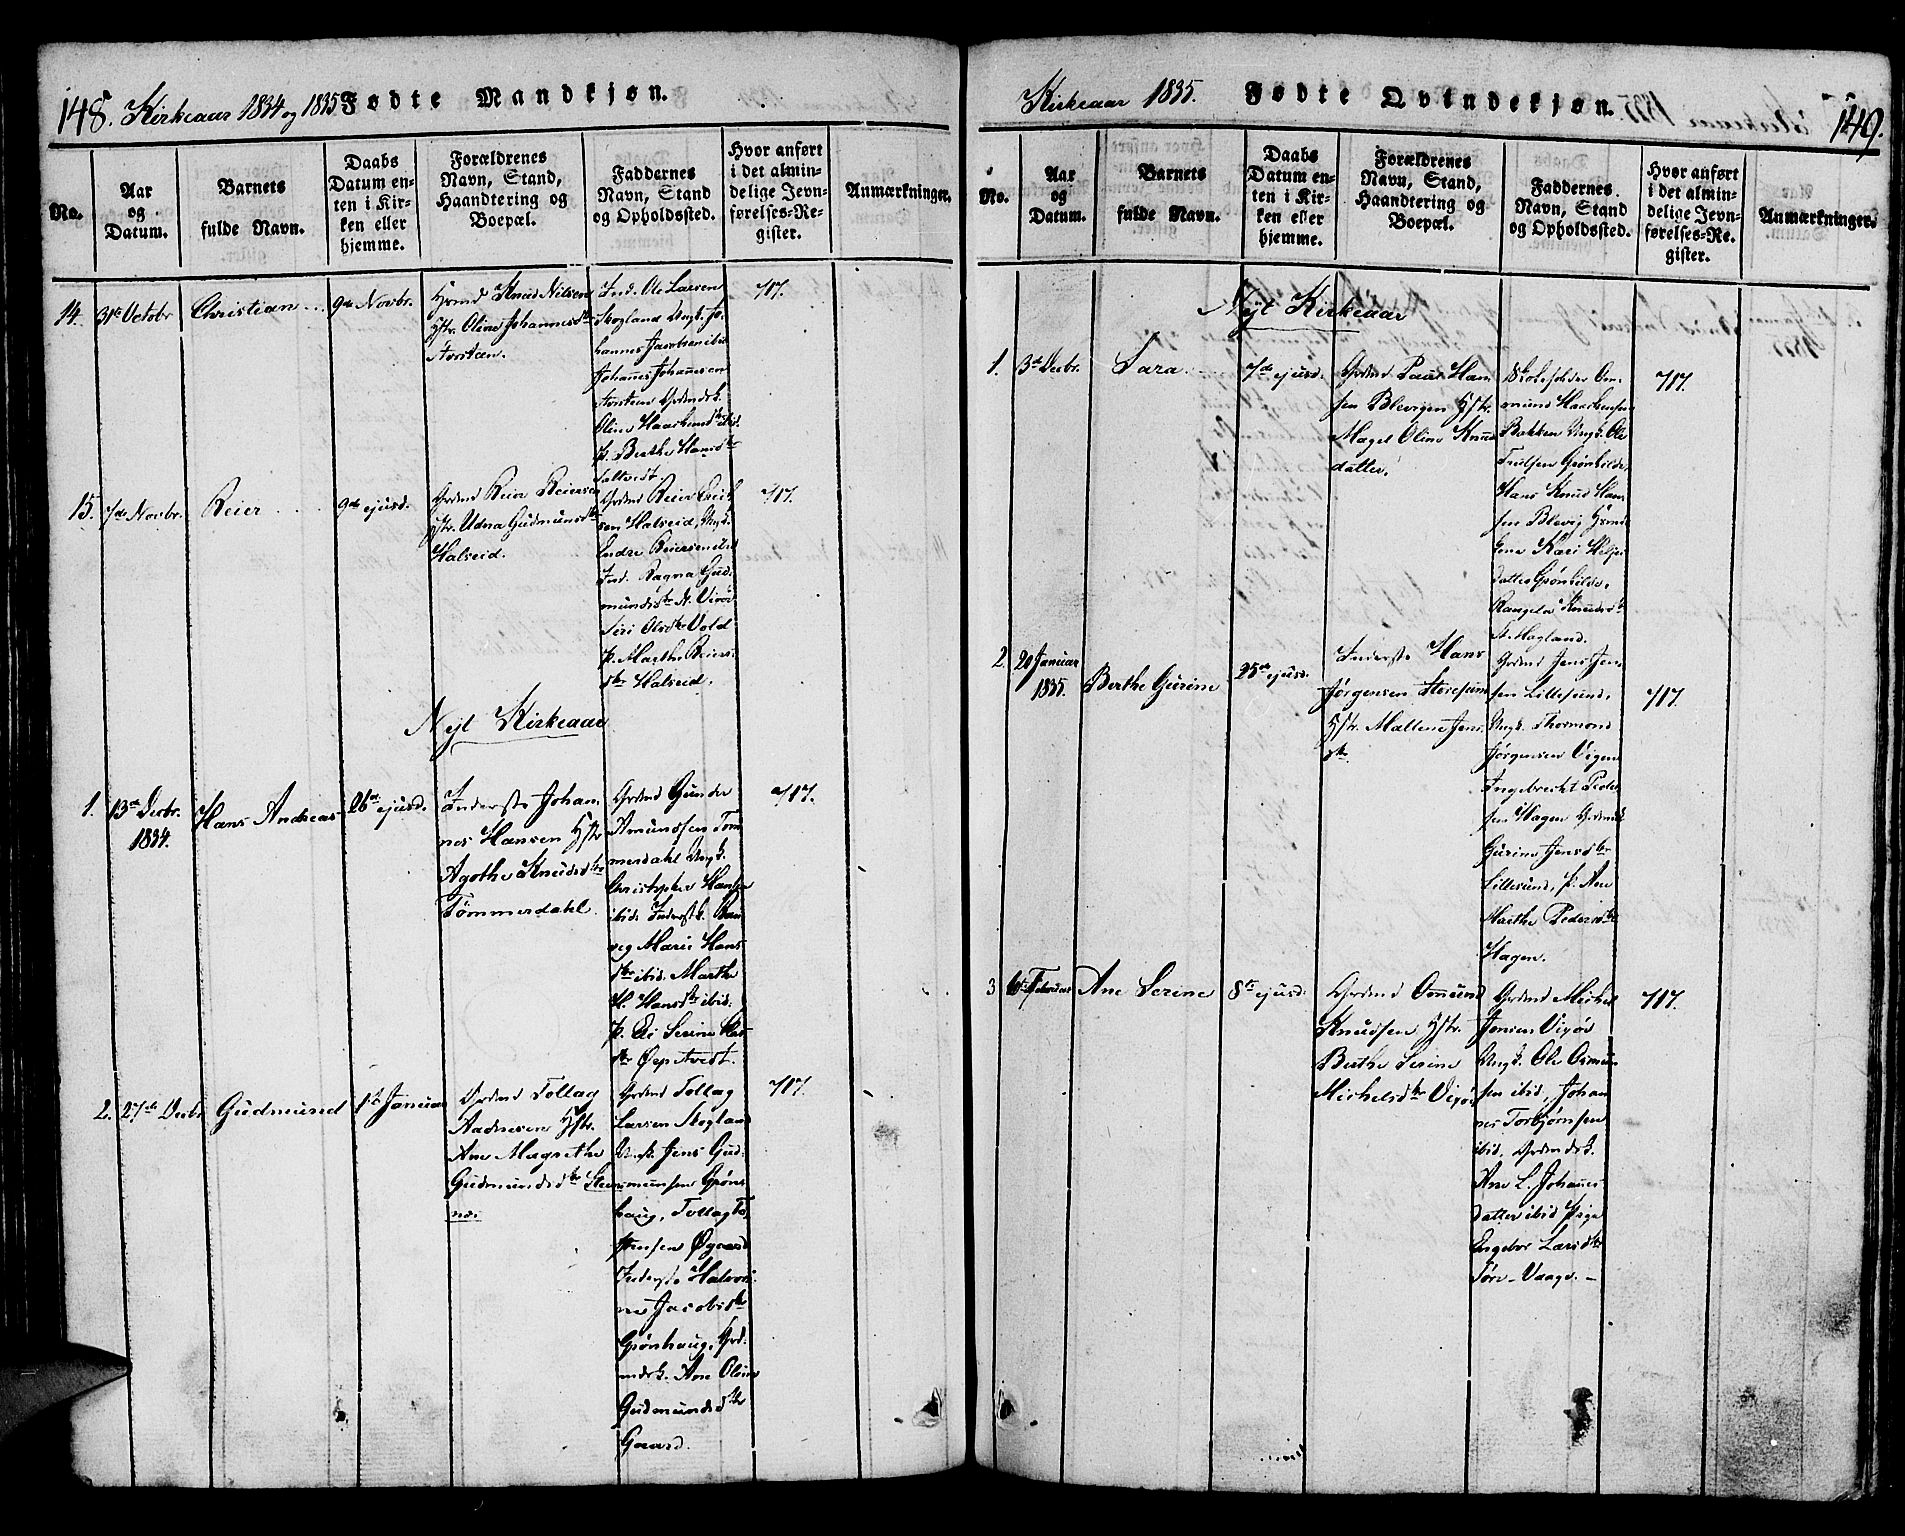 148. Kirkeaar 1834 og 1835 Fødte Mandkjøn.
No.
Aar
og
Datum.
Barnets
fulde Navn.
Daabs
Datum en-
ten i Kir-
ken eller
hjemme.
Forældrenes
Navn, Stand,
Haandtering og
Boepæl.
Faddernes
Navn, Stand
og Opholdssted.
Hvor anført
i det almin-
delige Jevn-
førelses-Re-
gister.
Anmærkninger.
14.
31te Octobr
Christian
9de Novbr.
Knud Nilsen
Hstr. Oline Johannesdtr
Ind. Ole Larsen
Skogland Ungk. Jo-
hannes Jacobsen ibid
Johannes Johannesen
Grdmdsk.
p. Berthe Hansdtr
717.
15.
7de Novbr.
Reier
9de ejusd.
Grdmd Reier Reiersen
Hstr. Udna Gudmundsdtr
Halseid.
Grdmd Reier Erick-
sen Halseid, Ungk.
Endre Reiersen ibid
Ind. Ragna Gud-
mundsdtr N. Vigøe
Siri Olsdtr Vold
p. Marthe Reiers-
dtr Halseid.
717.
Nyt Kirkeaar
1.
13de Decbr.
1834.
Hans Andreas
26de ejusd.
Inderste Johan-
nes Hansen Hstr
Agothe Knudsdtr
Tømmerdahl.
Grdmd Gunder
Amundsen Tøm-
merdahl Ungk.
Christopher Hansen
ibid. Inderstk. Ran-
veg Marie Hans-
dtr ibid. Marthe
H. Hansdtr ibid.
dtr Øvp Avedt.
717.
2.
27de Decbr
Gudmund
1st Januar
Grdmd Tollag
Aadnesen Hstr.
Ane Magrethe
Gudmundsdtr Steens-
næs
Grdmd Tollag
Larsen Skogland
Ungk. Jens Gud-
mundsen Grøns-
haug, Tollag To-
stensen Øgaard
Inderste Halvori-
ne Jacobsdtr
Grønhaug, Grd-
mdsk. Ane Oline
Gudmundsdtr
Gaard.
717.
Kirkeaar 1835. Fødte Qvindekjøn.
149.
No.
Aar
og
Datum.
Barnets
fulde Navn.
Daabs
Datum en-
ten i Kir-
ken eller
hjemme.
Forældrenes
Navn, Stand,
Haandtering og
Boepæl.
Faddernes
Navn, Stand
og Opholdssted.
Hvor anført
i det almin-
delige Jevn-
førelses-Re-
gister.
Anmærkninger.
Nyt Kirkeaar
1.
3de Decbr.
Sara
7de ejusd.
Grdmd Paul Han-
sen Blevigen Hstr.
Magel Oline Knud
datter.
Skoleholder Om-
mund Haavorsen
Bakken Ungk. Ole
Trulsen Grønhilde,
Hans Knud Han-
sen Blevig
Kari Helje-
datter Grønhilde,
Rangela Knudsdtr
St. Hagland.
717.
2.
20 Januar
1835.
Berthe Gurine
25de ejusd.
Inderste Hans
Jørgensen Storesund
Hstr. Mallene Jens-
dtr
Grdmd Jens Jen-
sen Lillesund,
Ungk. Thormond
Jørgensen Vigen
Ingebrecht Peder-
sen Hagen Grdmdsk
Gurine Jensdtr
Lillesund, p. Ane
Marthe Pedersdtr
Hagen.
717.
3
Februar
Ane Serine
8de ejusd.
Grdmd Ommund
Knudsen Hstr.
Berthe Serine
Michelsdtr Vigøe
Grdmd Michel
Jensen Vigøe
Ungk. Ole Osmun-
sen ibid, Johan-
nes Torbjørnsen
ibid, Grdmdsk.
Ane L. Johannes-
datter ibid Pige
Engebor Larsdtr
Vaage. –
717.